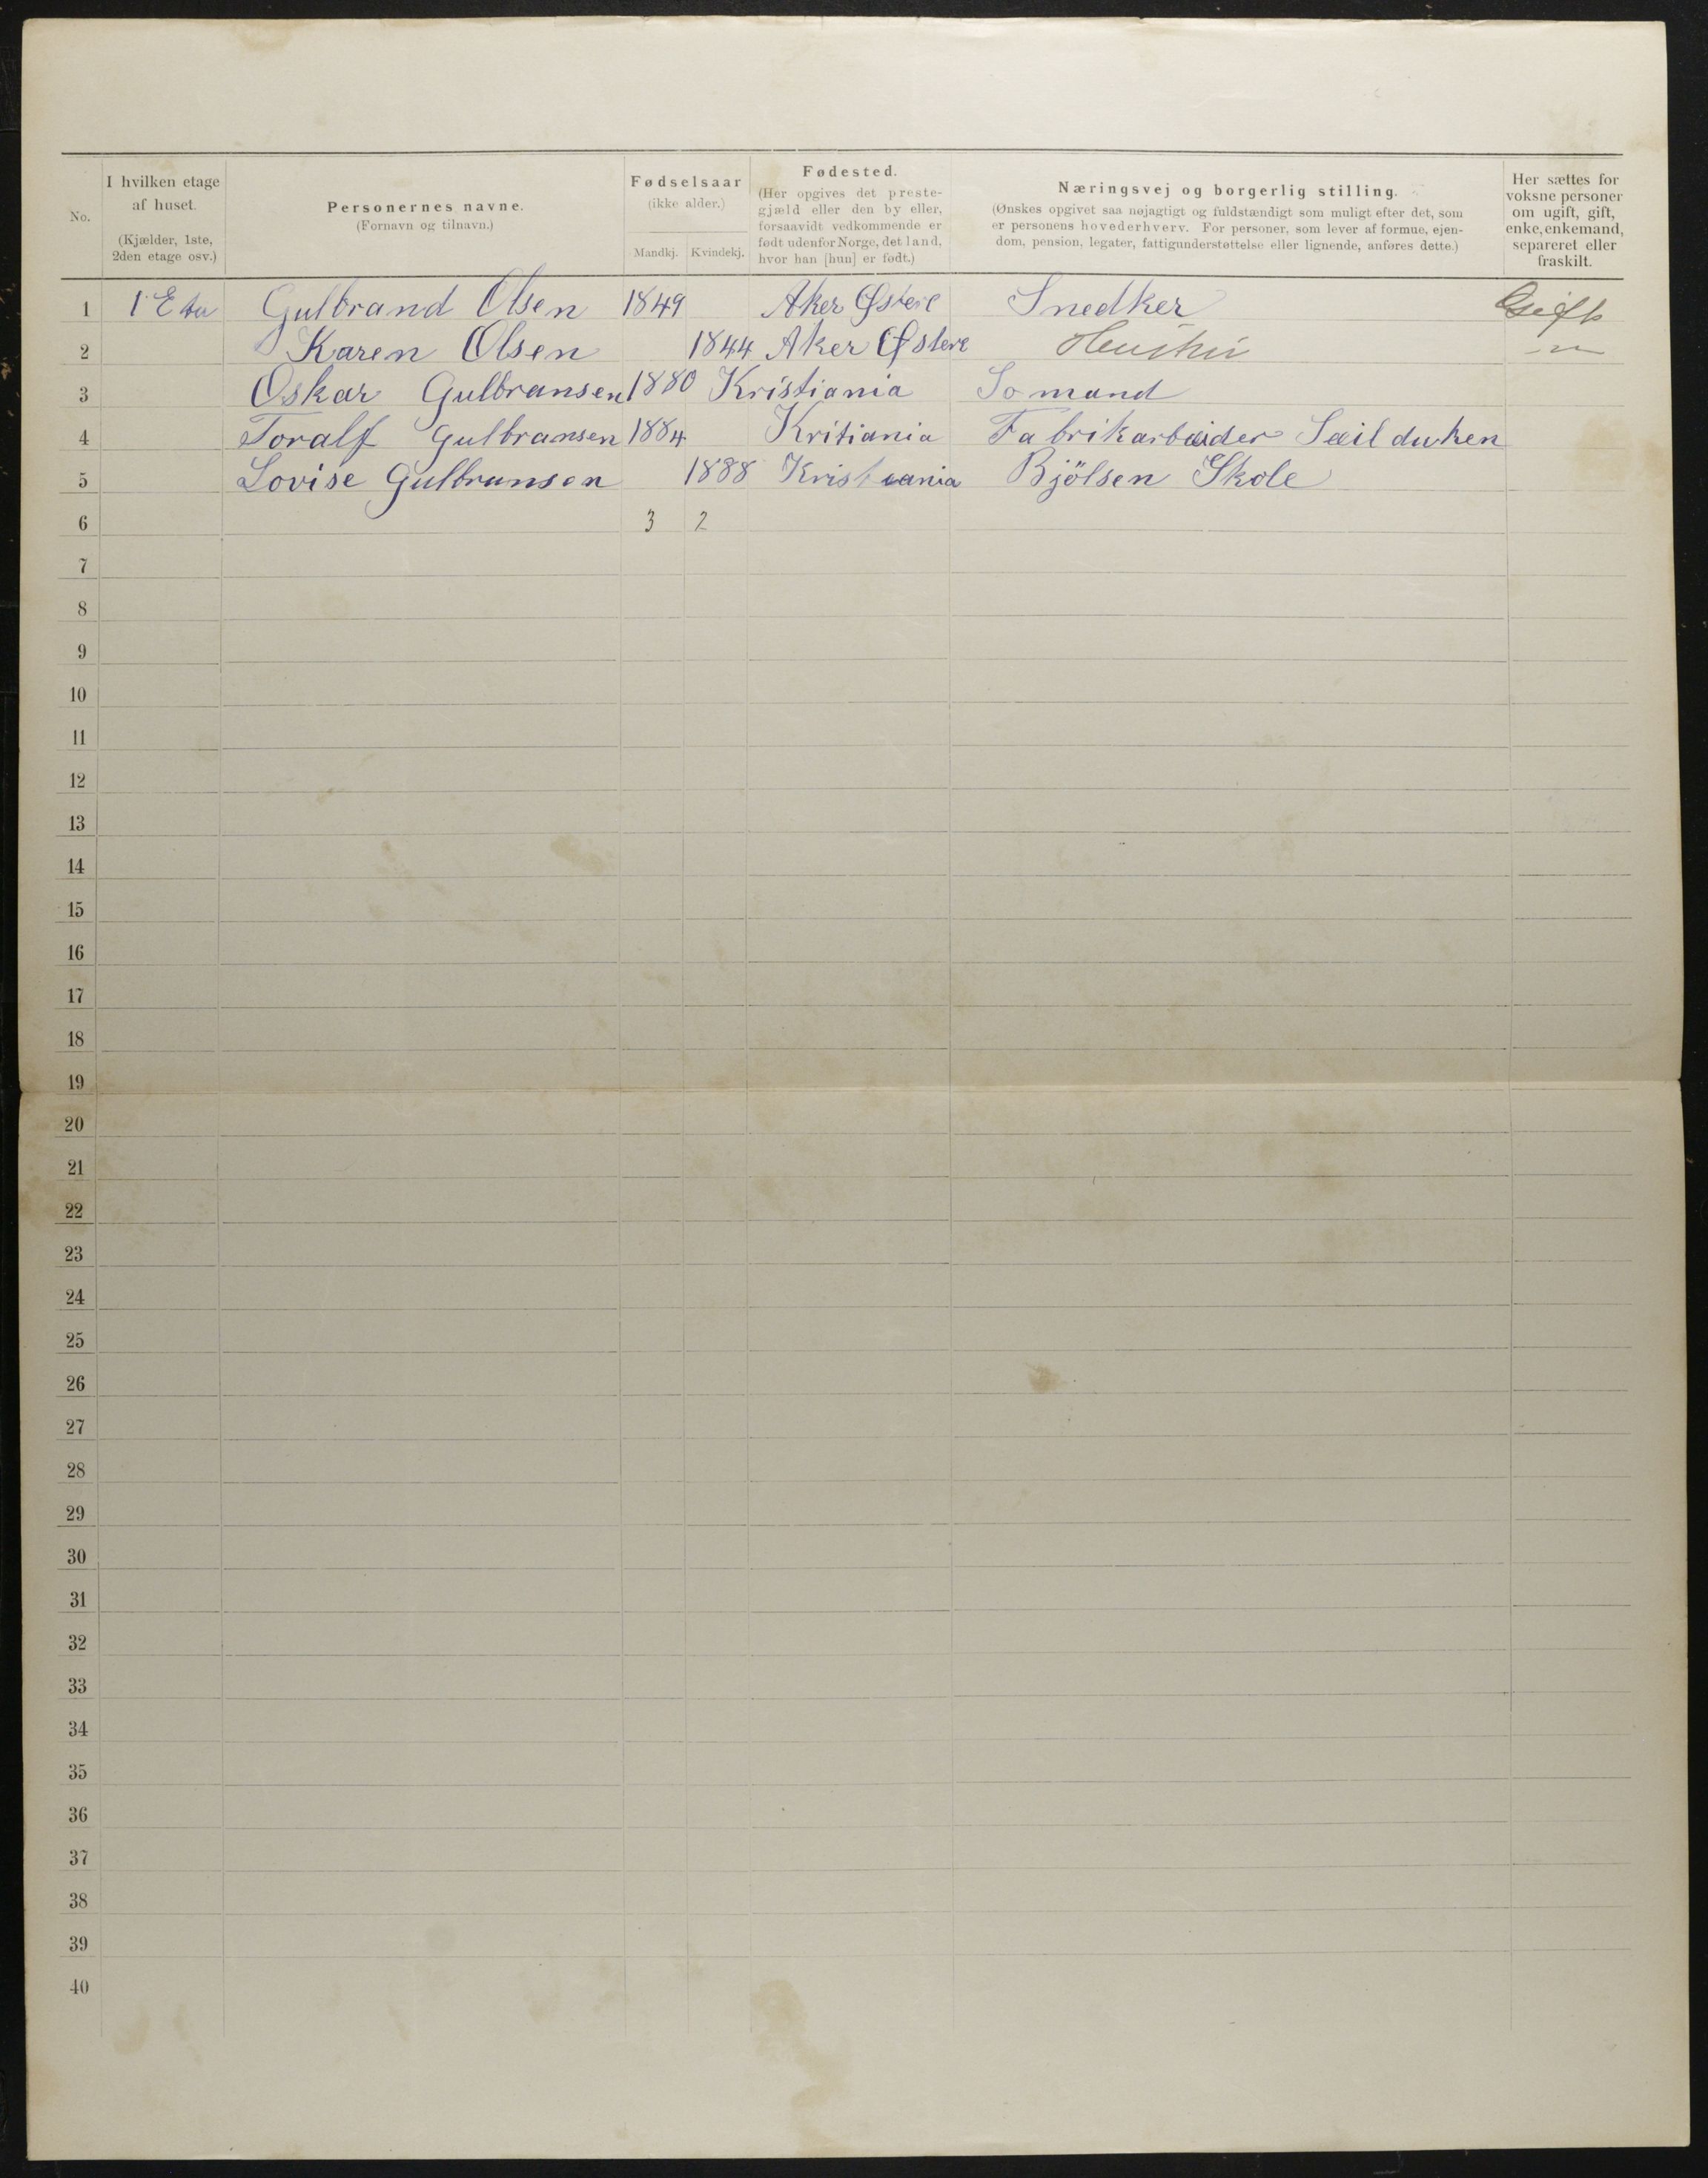 No.
I hvilken etage
af huset.
(Kjælder, 1ste,
2den etage osv.)
Personernes navne.
(Fornavn og tilnavn.)
Fødselsaar
(ikke alder.)
Mandkj. Kvindekj.
Fødested.
(Her opgives det preste-
gjæld eller den by eller,
forsaavidt vedkommende er
født udenfor Norge, det land,
hvor han [hun] er født.)
Næringsvej og borgerlig stilling.
(Ønskes opgivet saa nøjagtigt og fuldstændigt som muligt efter det, som
er personens hovederhverv. For personer, som lever af formue, ejen-
dom, pension, legater, fattigunderstøttelse eller lignende, anføres dette.)
Her sættes for
voksne personer
om ugift, gift,
enke, enkemand,
separeret eller
fraskilt.
1 1 Eta Gulbrand Olsen 1849 Aker Østere Snedker Gift
2 Karen Olsen 1844 Aker Østere Hustru
3 Oskar Gulbransen 1880 Kristiania Somand
4 Toralf Gulbransen 1884 Kritiania Fabrikarbeider Seilduken
5 Lovise Gulbransen 1888 Kristiania Bjölsen Skole
6 3 2
7
8
9
10
11
12
13
14
15
16
17
18
19
20
21
22
23
24
25
26
27
28
29
30
31
32
33
34
35
36
37
38
39
40